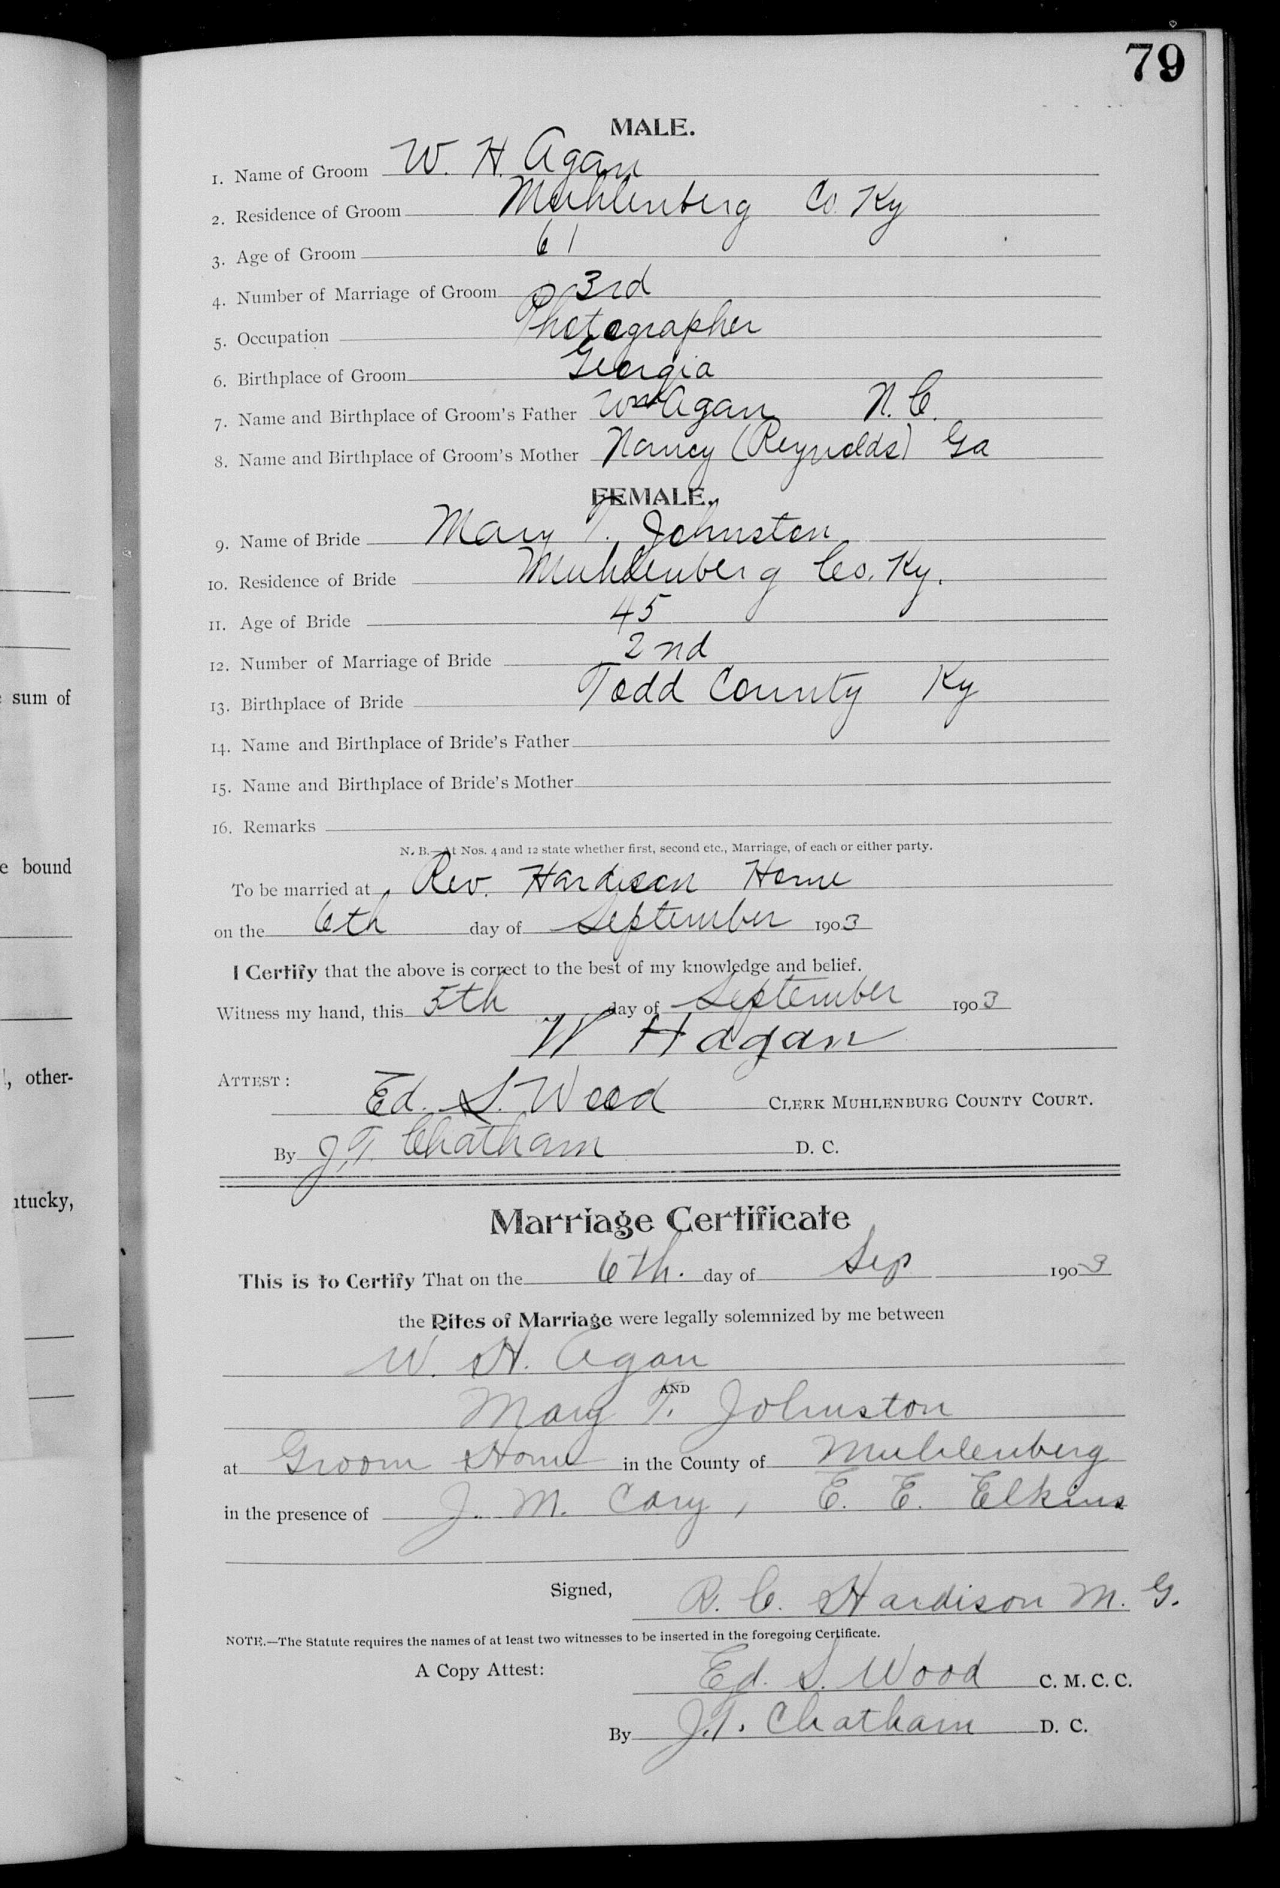 79
MALE.
1. Name of Groom W. H. Agan
2. Residence of Groom Muhlenberg Co. Ky
3. Age of Groom 61
4. Number of Marriage of Groom 3rd
5. Occupation Photographer
6. Birthplace of Groom Georgia
7. Name and Birthplace of Groom's Father Wm Agan N. C.
8. Name and Birthplace of Groom's Mother Nancy (Reynolds) Ga
FEMALE.
9. Name of Bride Mary T. Johnston
10. Residence of Bride Muhlenberg Co. Ky.
11. Age of Bride 45
12. Number of Marriage of Bride 2nd
13. Birthplace of Bride Todd County Ky
14. Name and Birthplace of Bride's Father
15. Name and Birthplace of Bride's Mother
16. Remarks
N. B.—At Nos. 4 and 12 state whether first, second etc., Marriage, of each or either party.
To be married at Rev. Hardison Home
on the 6th day of September 1903
I Certify that the above is correct to the best of my knowledge and belief.
Witness my hand, this 5th day of September 1903
W Hagan
ATTEST: Ed. S. Wood CLERK MUHLENBURG COUNTY COURT.
By J. T. Chatham D. C.
Marriage Certificate
This is to Certify That on the 6th. day of Sep 1903
the Rites of Marriage were legally solemnized by me between
W. H. Agan
AND
Mary T. Johnston
at Groom Home in the County of Muhlenberg
in the presence of J. M. Cary, E. E. Elkins
Signed, R. C. Hardison M. G.
NOTE.—The Statute requires the names of at least two witnesses to be inserted in the foregoing Certificate.
A Copy Attest: Ed. S. Wood C. M. C. C.
By J. T. Chatham D. C.
sum of
e bound
, other-
ntucky,